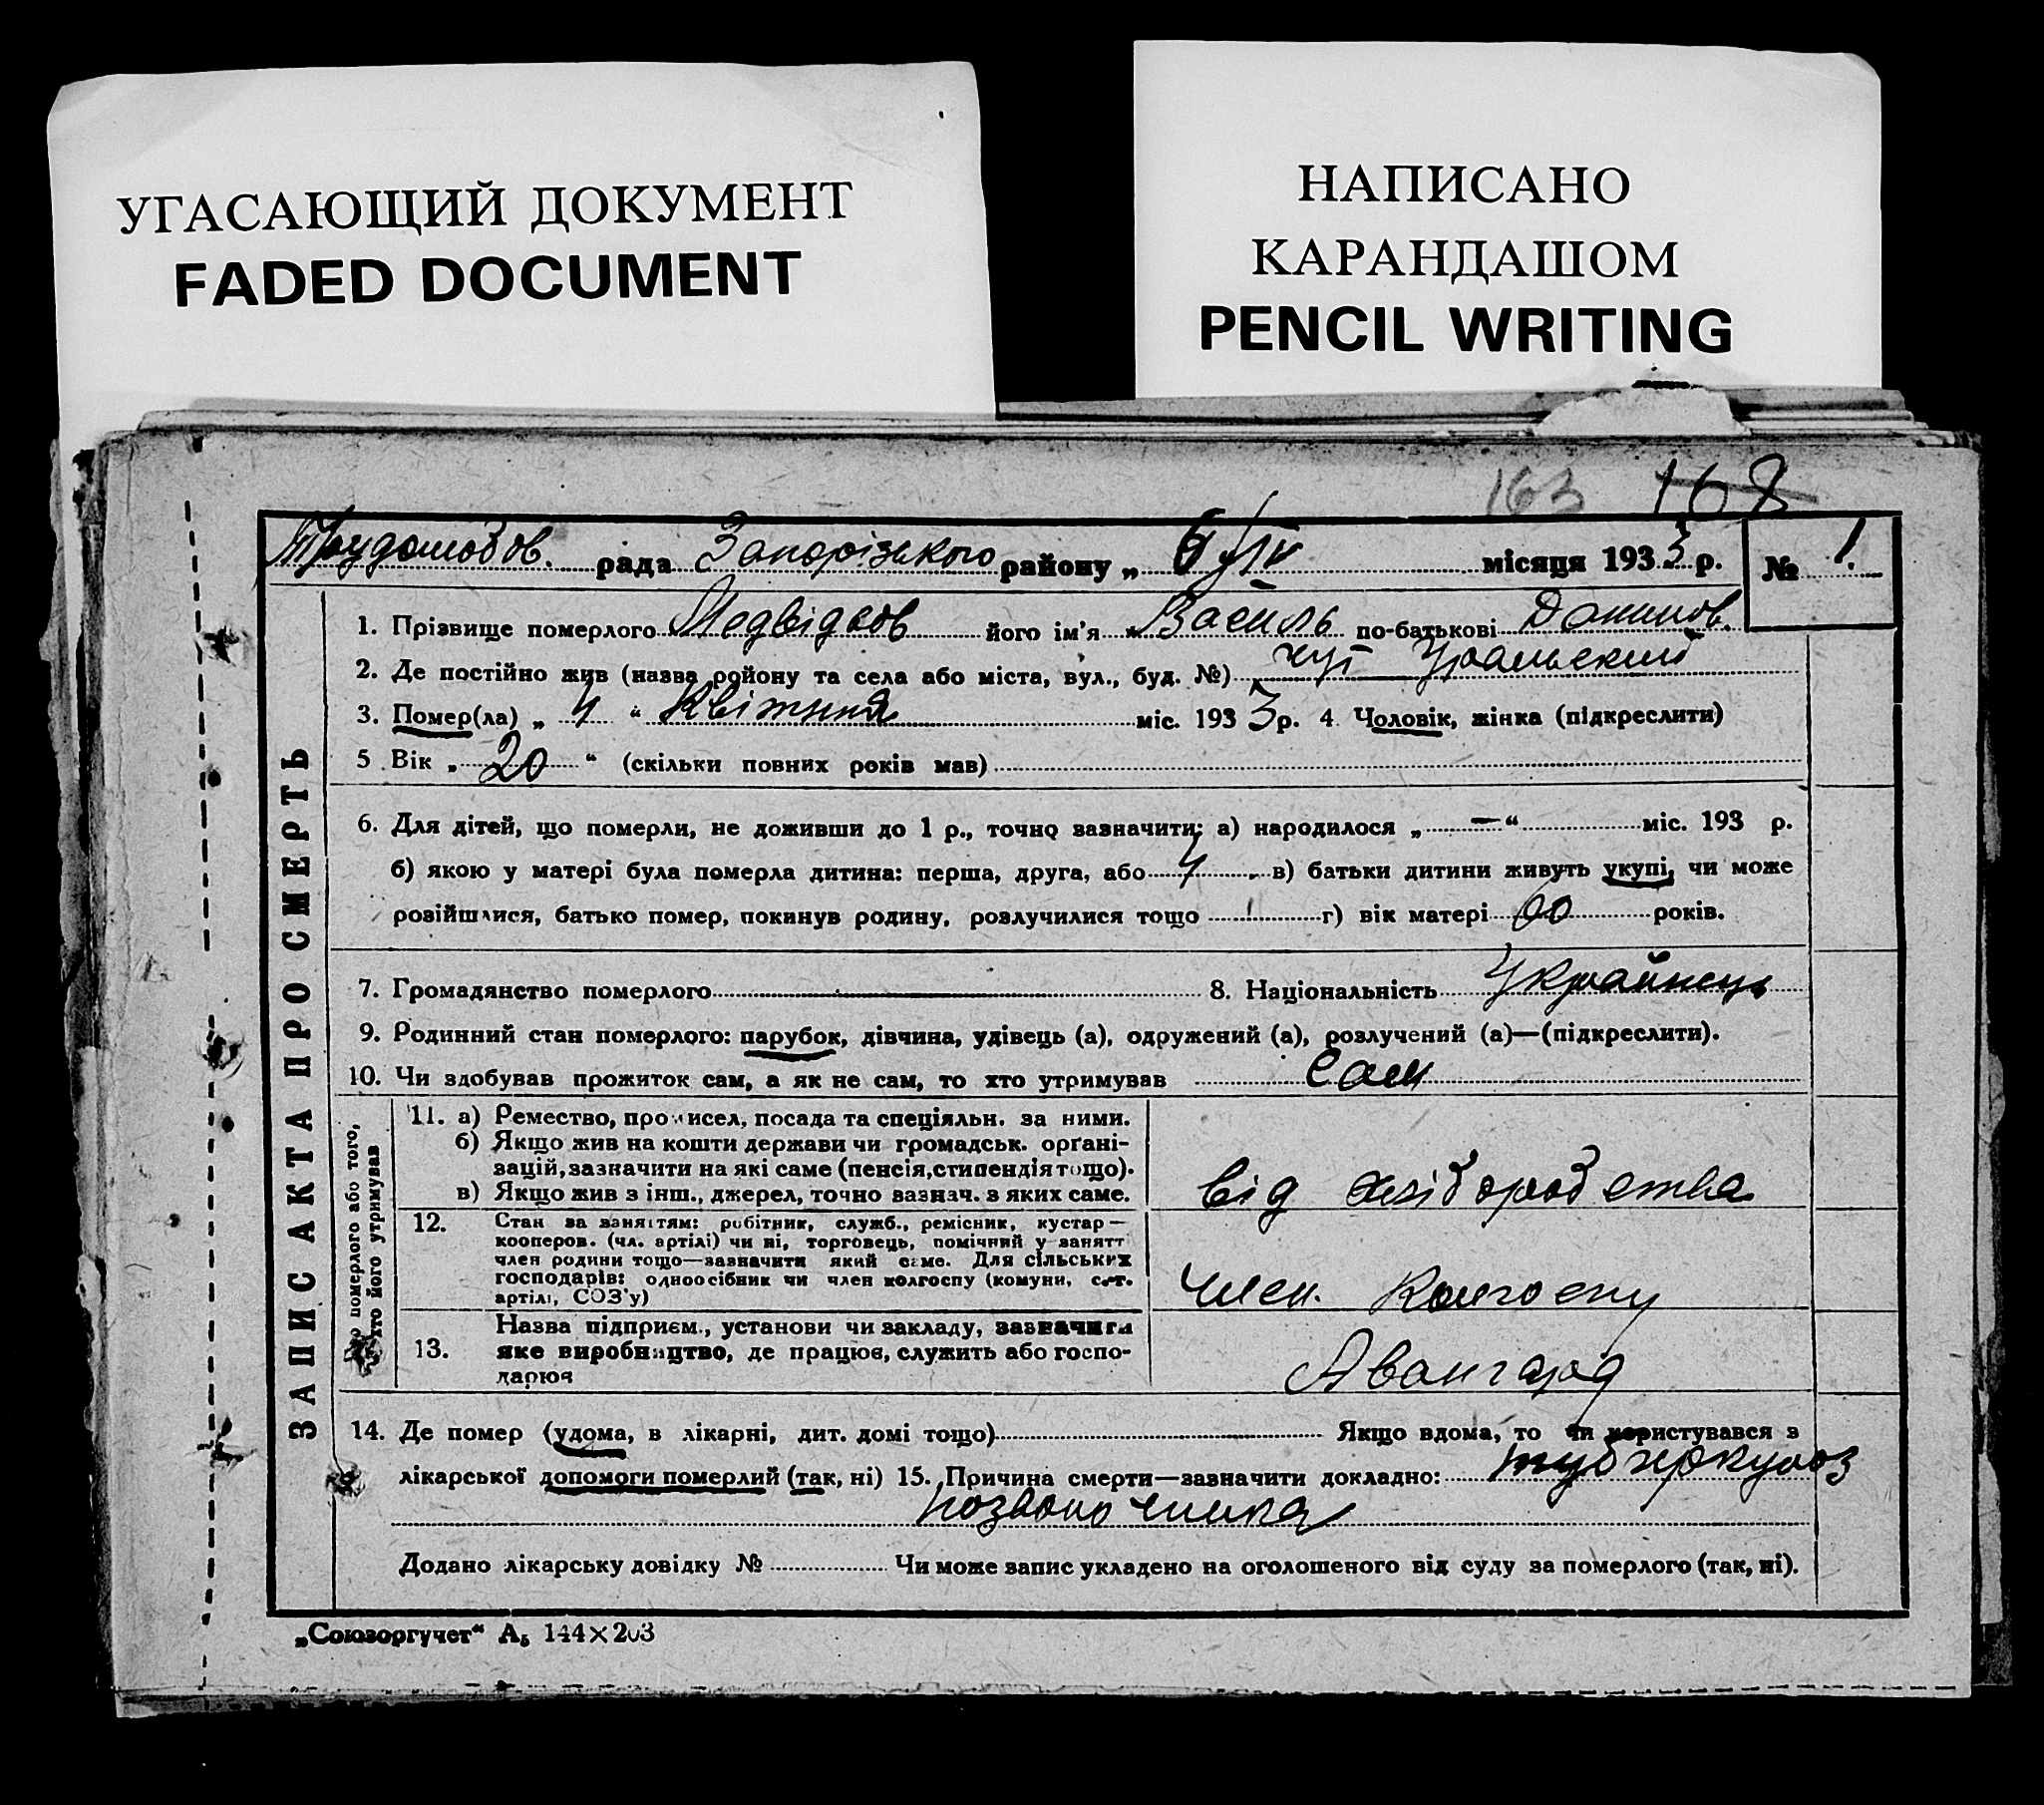 УГАСАЮЩИЙ ДОКУМЕНТ
FADED DOCUMENT
НАПИСАНО
КАРАНДАШОМ
PENCIL WRITING
163 168
Трудолюбов. рада Запорізького району „ 6/IV місяця 1933 р. № 1.
ЗАПИС АКТА ПРО СМЕРТЬ
1. Прізвище померлого Медвідков його ім'я Василь по-батькові
2. Де постійно жив (назва району та села або міста, вул., буд. №) хут Уральский
3. Помер(ла) „ 4 “ Квітння міс. 1933 р. 4 Чоловік, жінка (підкреслити)
5 Вік „ 20 “ (скільки повних років мав)
6. Для дітей, що померли, не доживши до 1 р., точно зазначити: а) народилося „ — “ міс. 193 р.
б) якою у матері була померла дитина: перша, друга, або 4 в) батьки дитини живуть укупі, чи може
розійшлися, батько помер, покинув родину, розлучилися тощо г) вік матері 60 років.
7. Громадянство померлого 8. Національність Українець
9. Родинний стан померлого: парубок, дівчина, удівець (а), одружений (а), розлучений (а)—(підкреслити).
10. Чи здобував прожиток сам, а як не сам, то хто утримував Сам
померлого або того,
хто його утримував
11. а) Ремество, промисел, посада та спеціяльн. за ними.
б) Якщо жив на кошти держави чи громадськ. органі-
зацій, зазначити на які саме (пенсія, стипендія тощо).
в) Якщо жив з інш., джерел, точно зазнач. з яких саме.
від хліборобства
12. Стан за заняттям: робітник, служб., ремісник, кустар —
кооперов. (чл. артілі) чи ні, торговець, помічний у занятт
член родини тощо—зазначити який саме. Для сільських
господарів: одноосібник чи член колгоспу (комуни, с.-г.
артілі, СОЗ'у)
Член. Колгоспу
13. Назва підприєм., установи чи закладу, зазначити
яке виробництво, де працює, служить або госпо-
дарює
Авангард
14. Де помер (удома, в лікарні, дит. домі тощо) Якщо вдома, то чи користувався з
лікарської допомоги померлий (так, ні) 15. Причина смерти—зазначити докладно: туберкулоз
позвоночника
Додано лікарську довідку № Чи може запис укладено на оголошеного від суду за померлого (так, ні).
„Союзоргучет“ А₅ 144×203